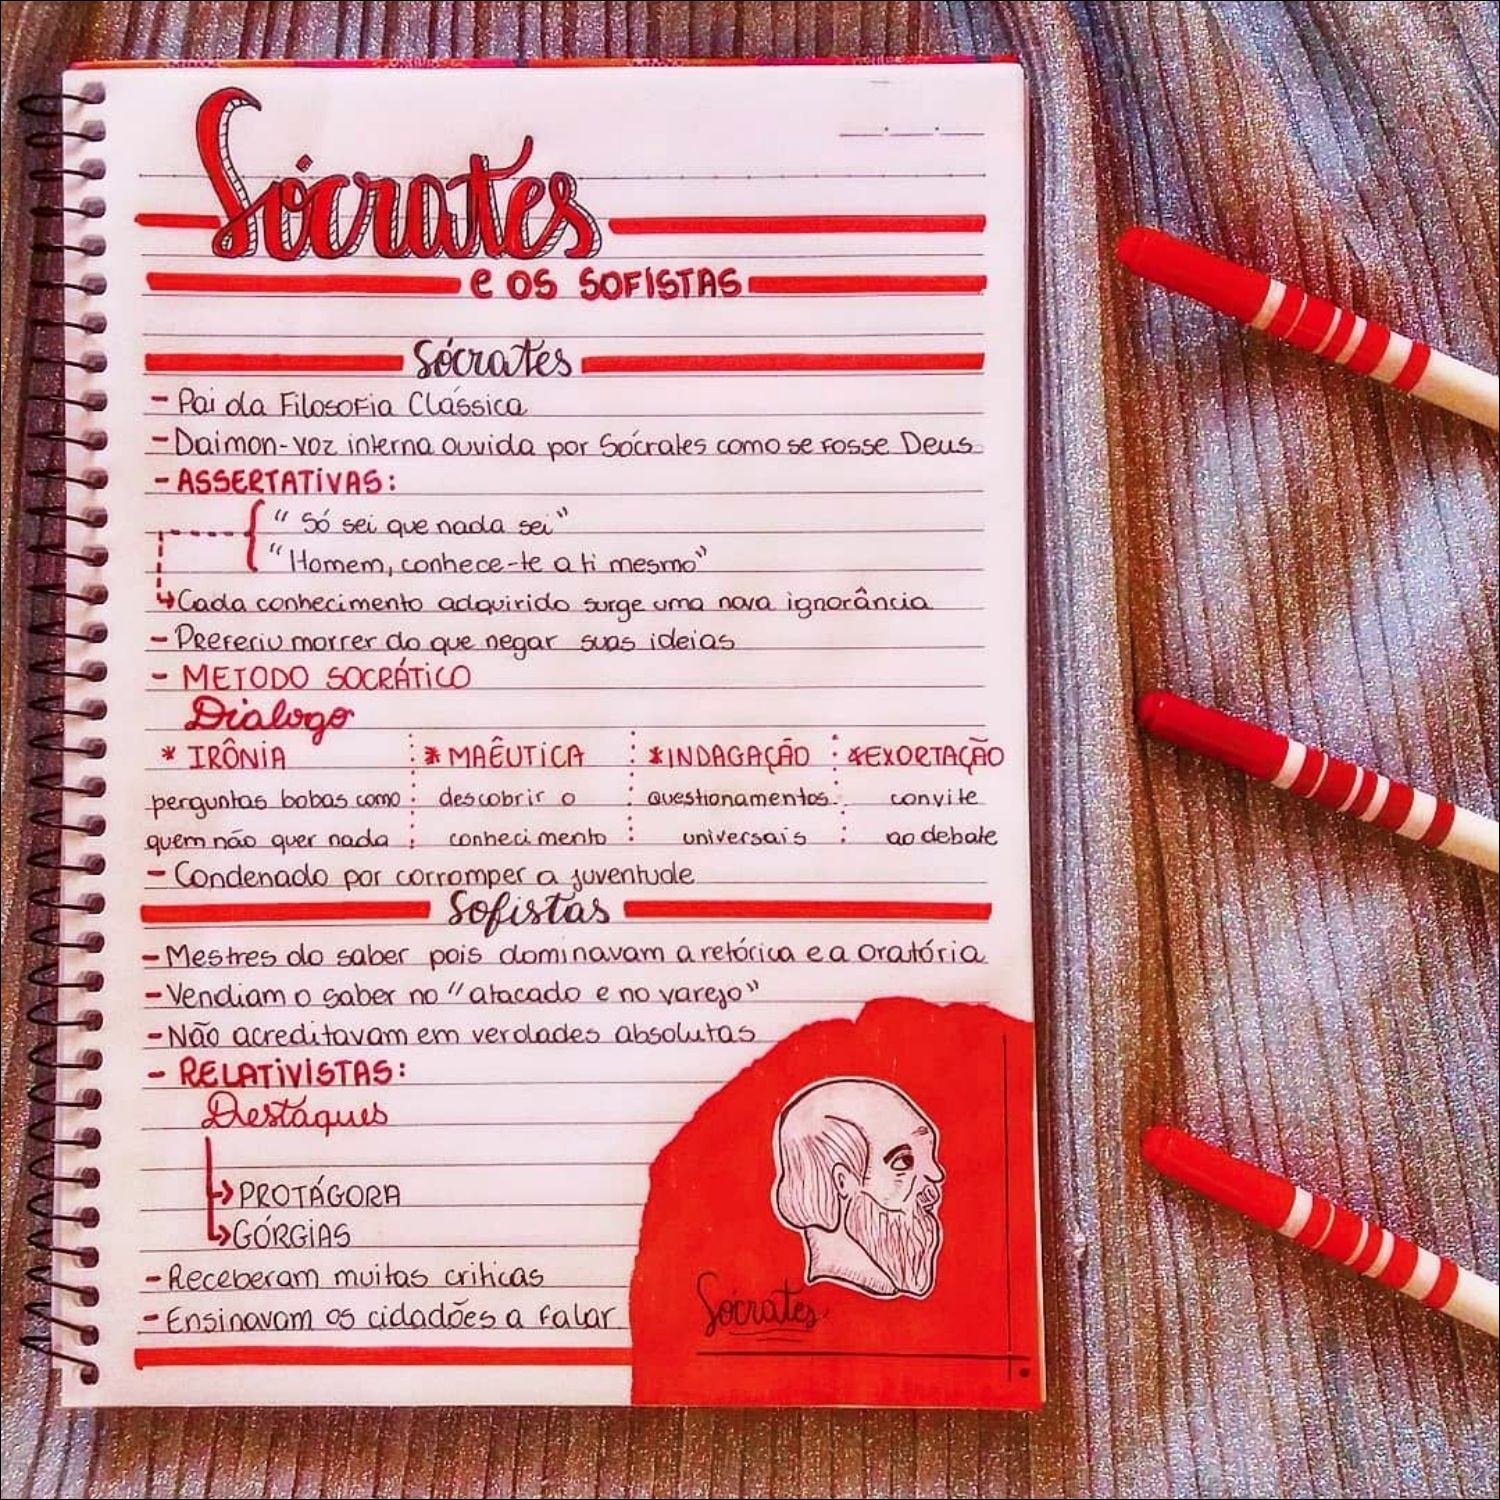 Sócrates
e os SOFISTAS
Sócrates
- Pai da Filosofia Clássica
- Daimon-voz interna ouvida por Sócrates como se fosse Deus
- ASSERTATIVAS:
"Só sei que nada sei"
"Homem, conhece-te a ti mesmo"
Cada conhecimento adquirido surge uma nova ignorância
- Preferiu morrer do que negar suas ideias
- METODO SOCRÁTICO
Dialogo
* IRÔNIA * MAÊUTICA * INDAGAÇÃO * EXORTAÇÃO
perguntas bobas como descobrir o questionamentos convite
quem não quer nada conhecimento universais ao debate
- Condenado por corromper a juventude
Sofistas
- Mestres do saber pois dominavam a retórica e a oratória
- Vendiam o saber no "atacado e no varejo"
- Não acreditavam em verdades absolutas
- RELATIVISTAS:
Destaques
PROTÁGORA
GÓRGIAS
- Receberam muitas criticas
- Ensinavam os cidadões a falar
Sócrates